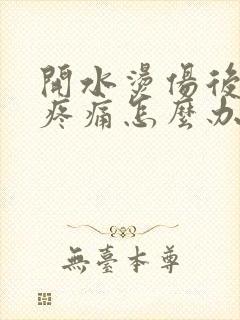 開水燙傷後
疼痛怎麼办
無臺本尊